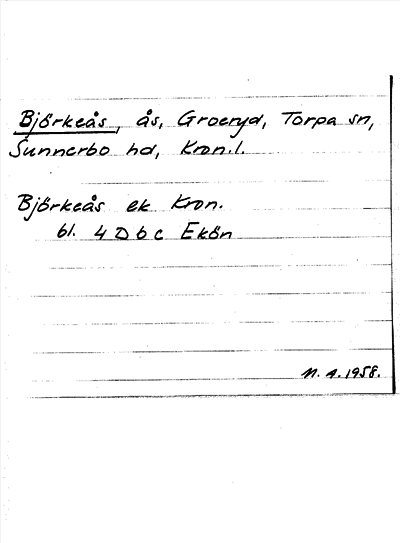 Björkeås, ås, Groeryd, Torpa sn,
Sunnerbo hd, Kron.l.
Björkeås ek. Kron.
bl. 4 D b c Ekön
N. A. 1958.